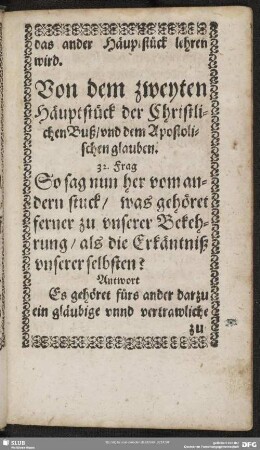 das ander Häuptstück lehren
wird.
Von dem zweyten
Häuptstück der Christli-
chen Buß/vnd dem Apostoli-
schen glauben.
32. Frag
So sag nun her vom an-
dern stuck/ was gehöret
ferner zu vnserer Bekeh-
rung/ als die Erkäntniß
vnserer selbsten?
Antwort
Es gehöret fürs ander darzu
ein gläubige vnnd vertrawliche
zu
SLUB
DFG